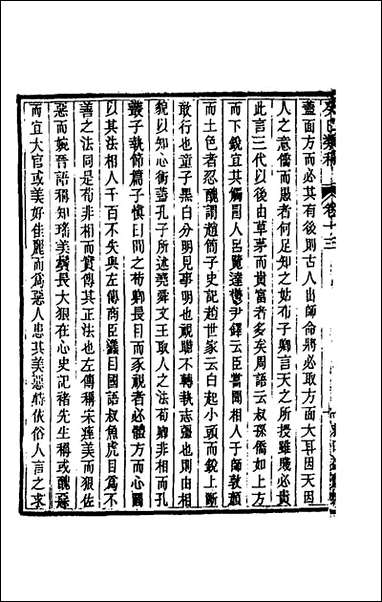 癸巳類稿 卷十三
畫面方而必其有後則古人出師命將必取方面大耳因天因
人之意儒而愚者何足知之姑布子卿言天之所授雖賤必貴
此言三代以後由草茅而貴富者多矣周語云叔孫僑如上方
而下銳宜其觸冒人呂覽達鬱尹鐸云臣嘗聞相人于師敦顏
而土色者忍醜謂趙簡子史記趙世家云白起小頭而銳上斷
敢行也童子黑白分明見事明也視瞻不轉執志强也則由相
貌以知心術蓋孔子所述堯舜文王取人之法荀卿非相而孔
叢子執節篇子愼曰聞之荀卿長目而豕視者必體方而心圓
以其法相人千百不失與左傳商臣蠭目國語叔魚虎目爲不
善之法同是荀非相而實傳其正法也左傳稱宋痤美而狠佐
惡而婉晉語稱知瑤美鬢長大狠在心史記褚先生稱或醜惡
而宜大官或美好佳麗而爲惡人患其美惡特依俗人言之求